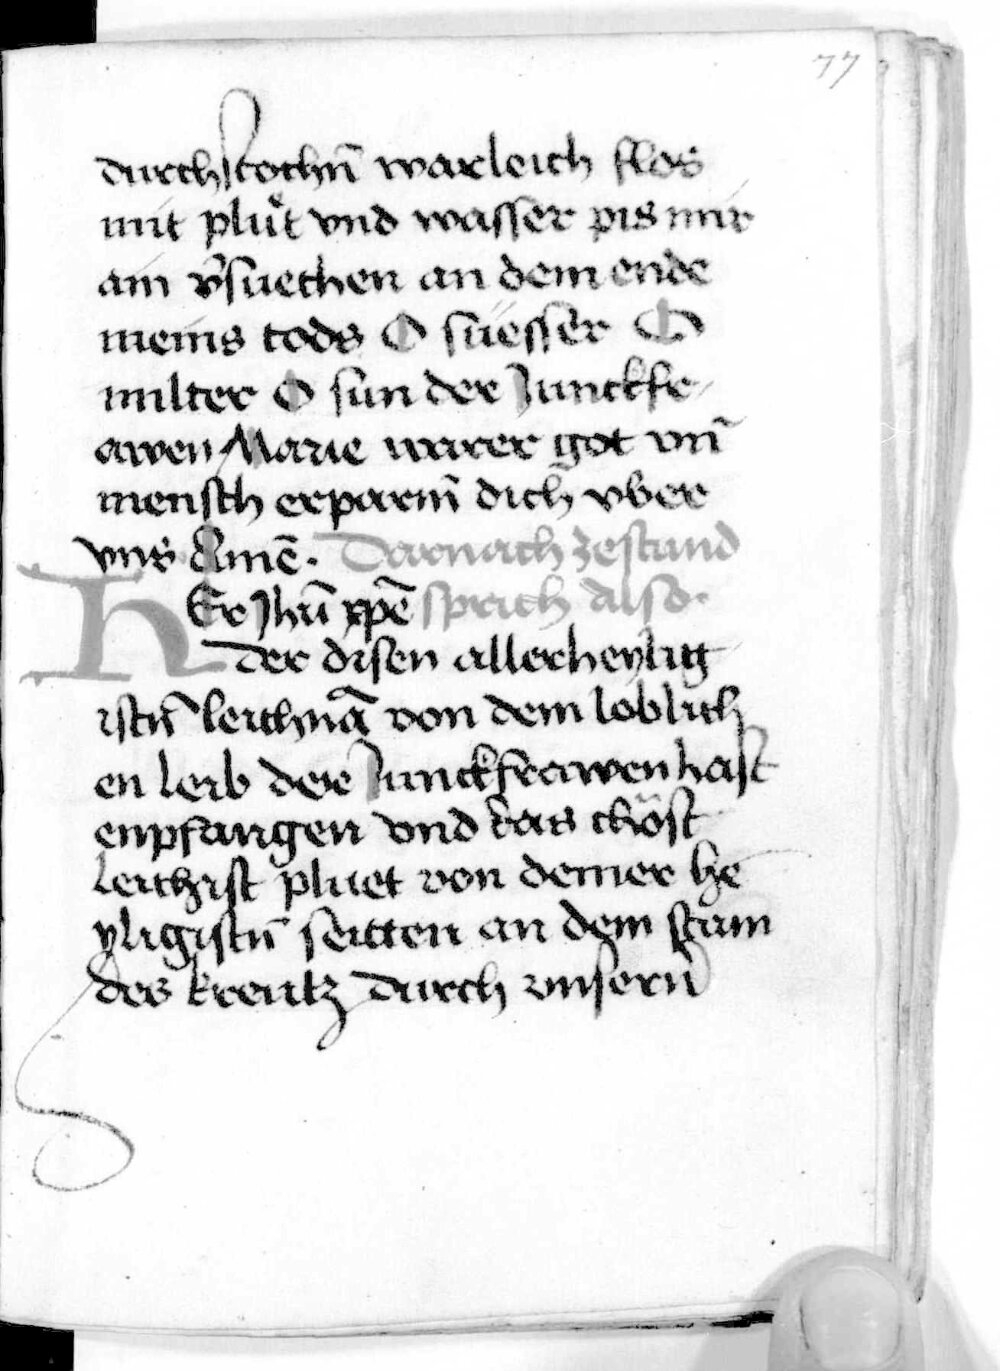 77
durchstochn̄ warleich flos
mit plůt vnd wasser pis mir
ain v̄suechen an dem ende
meins tods O süesser O
milter O sun der Junckfr
awen Marie warer got vn̄
mensch erparm̄ dich vber
vns Amē. Darnach zestund
HEr Jhū xpē sprich also.
der disen allerheylig
istn̄ leichnā von dem loblich
en leib der Junckfrawen hast
enpfangen vnd das chöst
leichist pluet von deiner he
yligistn̄ seitten an dem stam
des kreutz durch vnsern̄